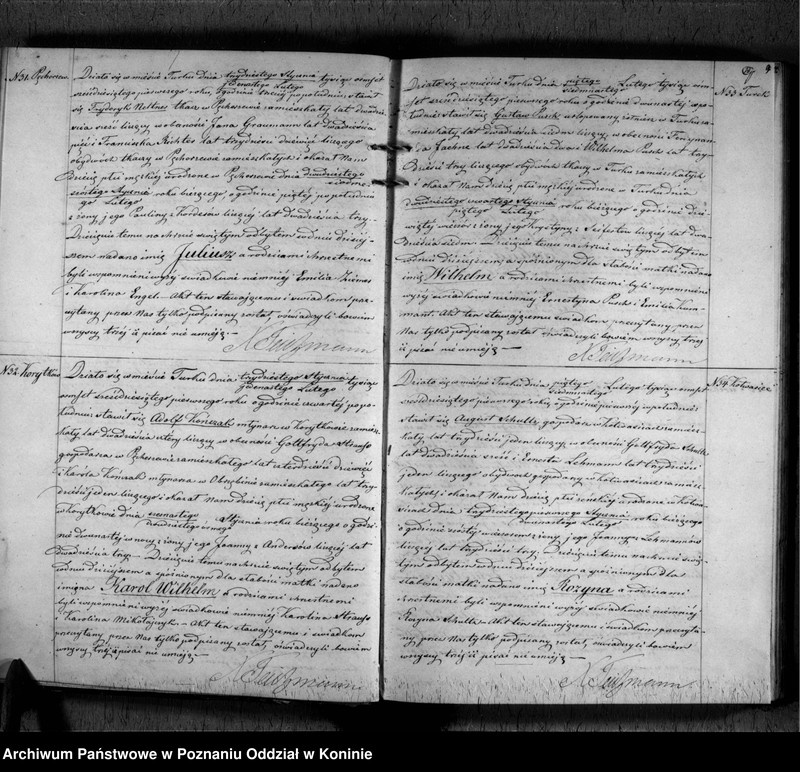 N 31. Pęcherzew
Działo się w mieście Turku dnia trzydziestego Stycznia tysiąc ośmset
jedenastego Lutego
sześćdziesiątego pierwszego roku, o godzinie po południu, stawił
się Fryderyk Neltner tkacz w Pęcherzewie zamieszkały lat dwadzieścia
sześć liczący w obecności Jana Graumann lat dwadzieścia
pięć i Franciszka Richter lat trzydzieści dziewięć liczącego
obydwóch tkaczy w Pęcherzewie zamieszkałych i okazał Nam
dziecię płci męzkiej urodzone w Pęcherzewie dnia dwudziestego
szóstego Stycznia roku bieżącego, o godzinie piątej po południu
go Lutego
z żony jego Pauliny z Kordesów liczącej lat dwadzieścia trzy.
Dziecięciu temu na Chrzcie świętym odbytym w dniu dzisiej-
szem nadano imię Juliusz a rodzicami chrzestnemi
byli wspomnieni wyżej świadkowie niemniéj Emilia
i Karolina Engel. Akt ten stawającemu i świadkom prze-
czytany, przez Nas tylko podpisany został, oświadczyli bowiem
wszyscy trzej iż pisać nie umieją.
N 32. Korytków
Działo się w mieście Turku dnia trzydziestego Stycznia tysiąc
jedenastego Lutego
ośmset sześćdziesiątego pierwszego roku o godzinie czwartej popo-
łudniu, stawił się Adolf Konczak młynarz w Korytkowie zamiesz-
kały, lat dwadzieścia cztery liczący w obecności Gottfryda Strauss
gospodarza w zamieszkałego lat czterdzieści dziewięć
i Karola Konczak młynarza w Obrębinie zamieszkałego lat trzy-
dzieści jeden liczącego i okazał Nam dziecię płci męzkiej urodzone
w Korytkowie dnia szesnastego Stycznia roku bieżącego o godzi-
dwudziestego ósmego
nie dwunastej w nocy z żony jego Joanny z Andersów liczącej lat
dwadzieścia trzy. Dziecięciu temu na Chrzcie świętym odbytem
w dniu dzisiejszem a spóźnionym dla słabości matki nadano
imiona Karol Wilhelm a rodzicami chrzestnemi
byli wspomnieni wyżej świadkowie niemniéj Karolina Strauss
i Karolina Mikołajczyk. Akt ten stawającemu i świadkom
przeczytany, przez Nas tylko podpisany został, oświadczyli bowiem
wszyscy trzej iż pisać nie umieją.
N 33 Turek
Działo się w mieście Turku dnia piątego Lutego tysiąc ośm-
siedmnastego
set sześćdziesiątego pierwszego roku o godzinie dwunastej w po-
łudnie stawił się Gustaw Pusch w Turku za-
mieszkały lat dwadzieścia siedm liczący, w obecności Ferdynan-
da Jachne lat dwadzieścia dwa i Wilhelma Pusch lat trzy-
dzieści trzy liczącego obydwóch tkaczy w Turku zamieszkałych
i okazał Nam dziecię płci męzkiej urodzone w Turku dnia
dwudziestego czwartego Stycznia roku bieżącego o godzinie dzie-
piątego Lutego
wiątej wieczór z żony jego Krystyny z liczącej lat dwa-
dzieścia siedm. Dziecięciu temu na Chrzcie świętym odbytem
w dniu dzisiejszem, a spóźnionym dla słabości matki nadano
imię Wilhelm a rodzicami chrzestnemi byli wspomnieni
wyżej świadkowie niemniéj Ernestyna Pusch i Emilia
Akt ten stawającemu i świadkom przeczytany, przez
Nas tylko podpisany został, oświadczyli bowiem wszyscy trzej
iż pisać nie umieją.
N 34
Działo się w mieście Turku dnia piątego Lutego tysiąc ośmset
siedmnastego
sześćdziesiątego pierwszego roku o godzinie pierwszej z południa
stawił się August Schultz gospodarz w zamiesz-
kały lat trzydzieści jeden liczący, w obecności Gottfryda Schultz
lat dwadzieścia sześć i Ernesta Lehmann lat trzydzieści
jeden liczącego obydwóch gospodarzy w zamiesz-
kałych i okazał Nam dziecię płci żeńskiej urodzone w
dnia trzydziestego pierwszego Stycznia roku bieżącego
dwunastego Lutego
o godzinie szóstej wieczorem z żony jego Joanny z Lehmanów
liczącej lat trzydzieści trzy. Dziecięciu temu na Chrzcie świę-
tym odbytem w dniu dzisiejszem a spóźnionym dla
słabości matki nadano imię Rozyna a rodzicami
chrzestnemi byli wspomnieni wyżej świadkowie niemniéj
Rozyna Schultz. Akt ten stawającemu i świadkom przeczyta-
ny, przez Nas tylko podpisany został, oświadczyli bowiem
wszyscy trzej iż pisać nie umieją.
Archiwum Państwowe w Poznaniu Oddział w Koninie